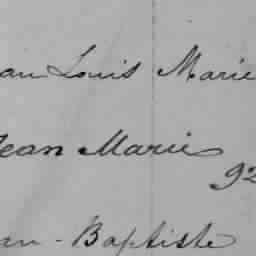 ean Louis Marie
Jean Marie
92
an-Baptiste